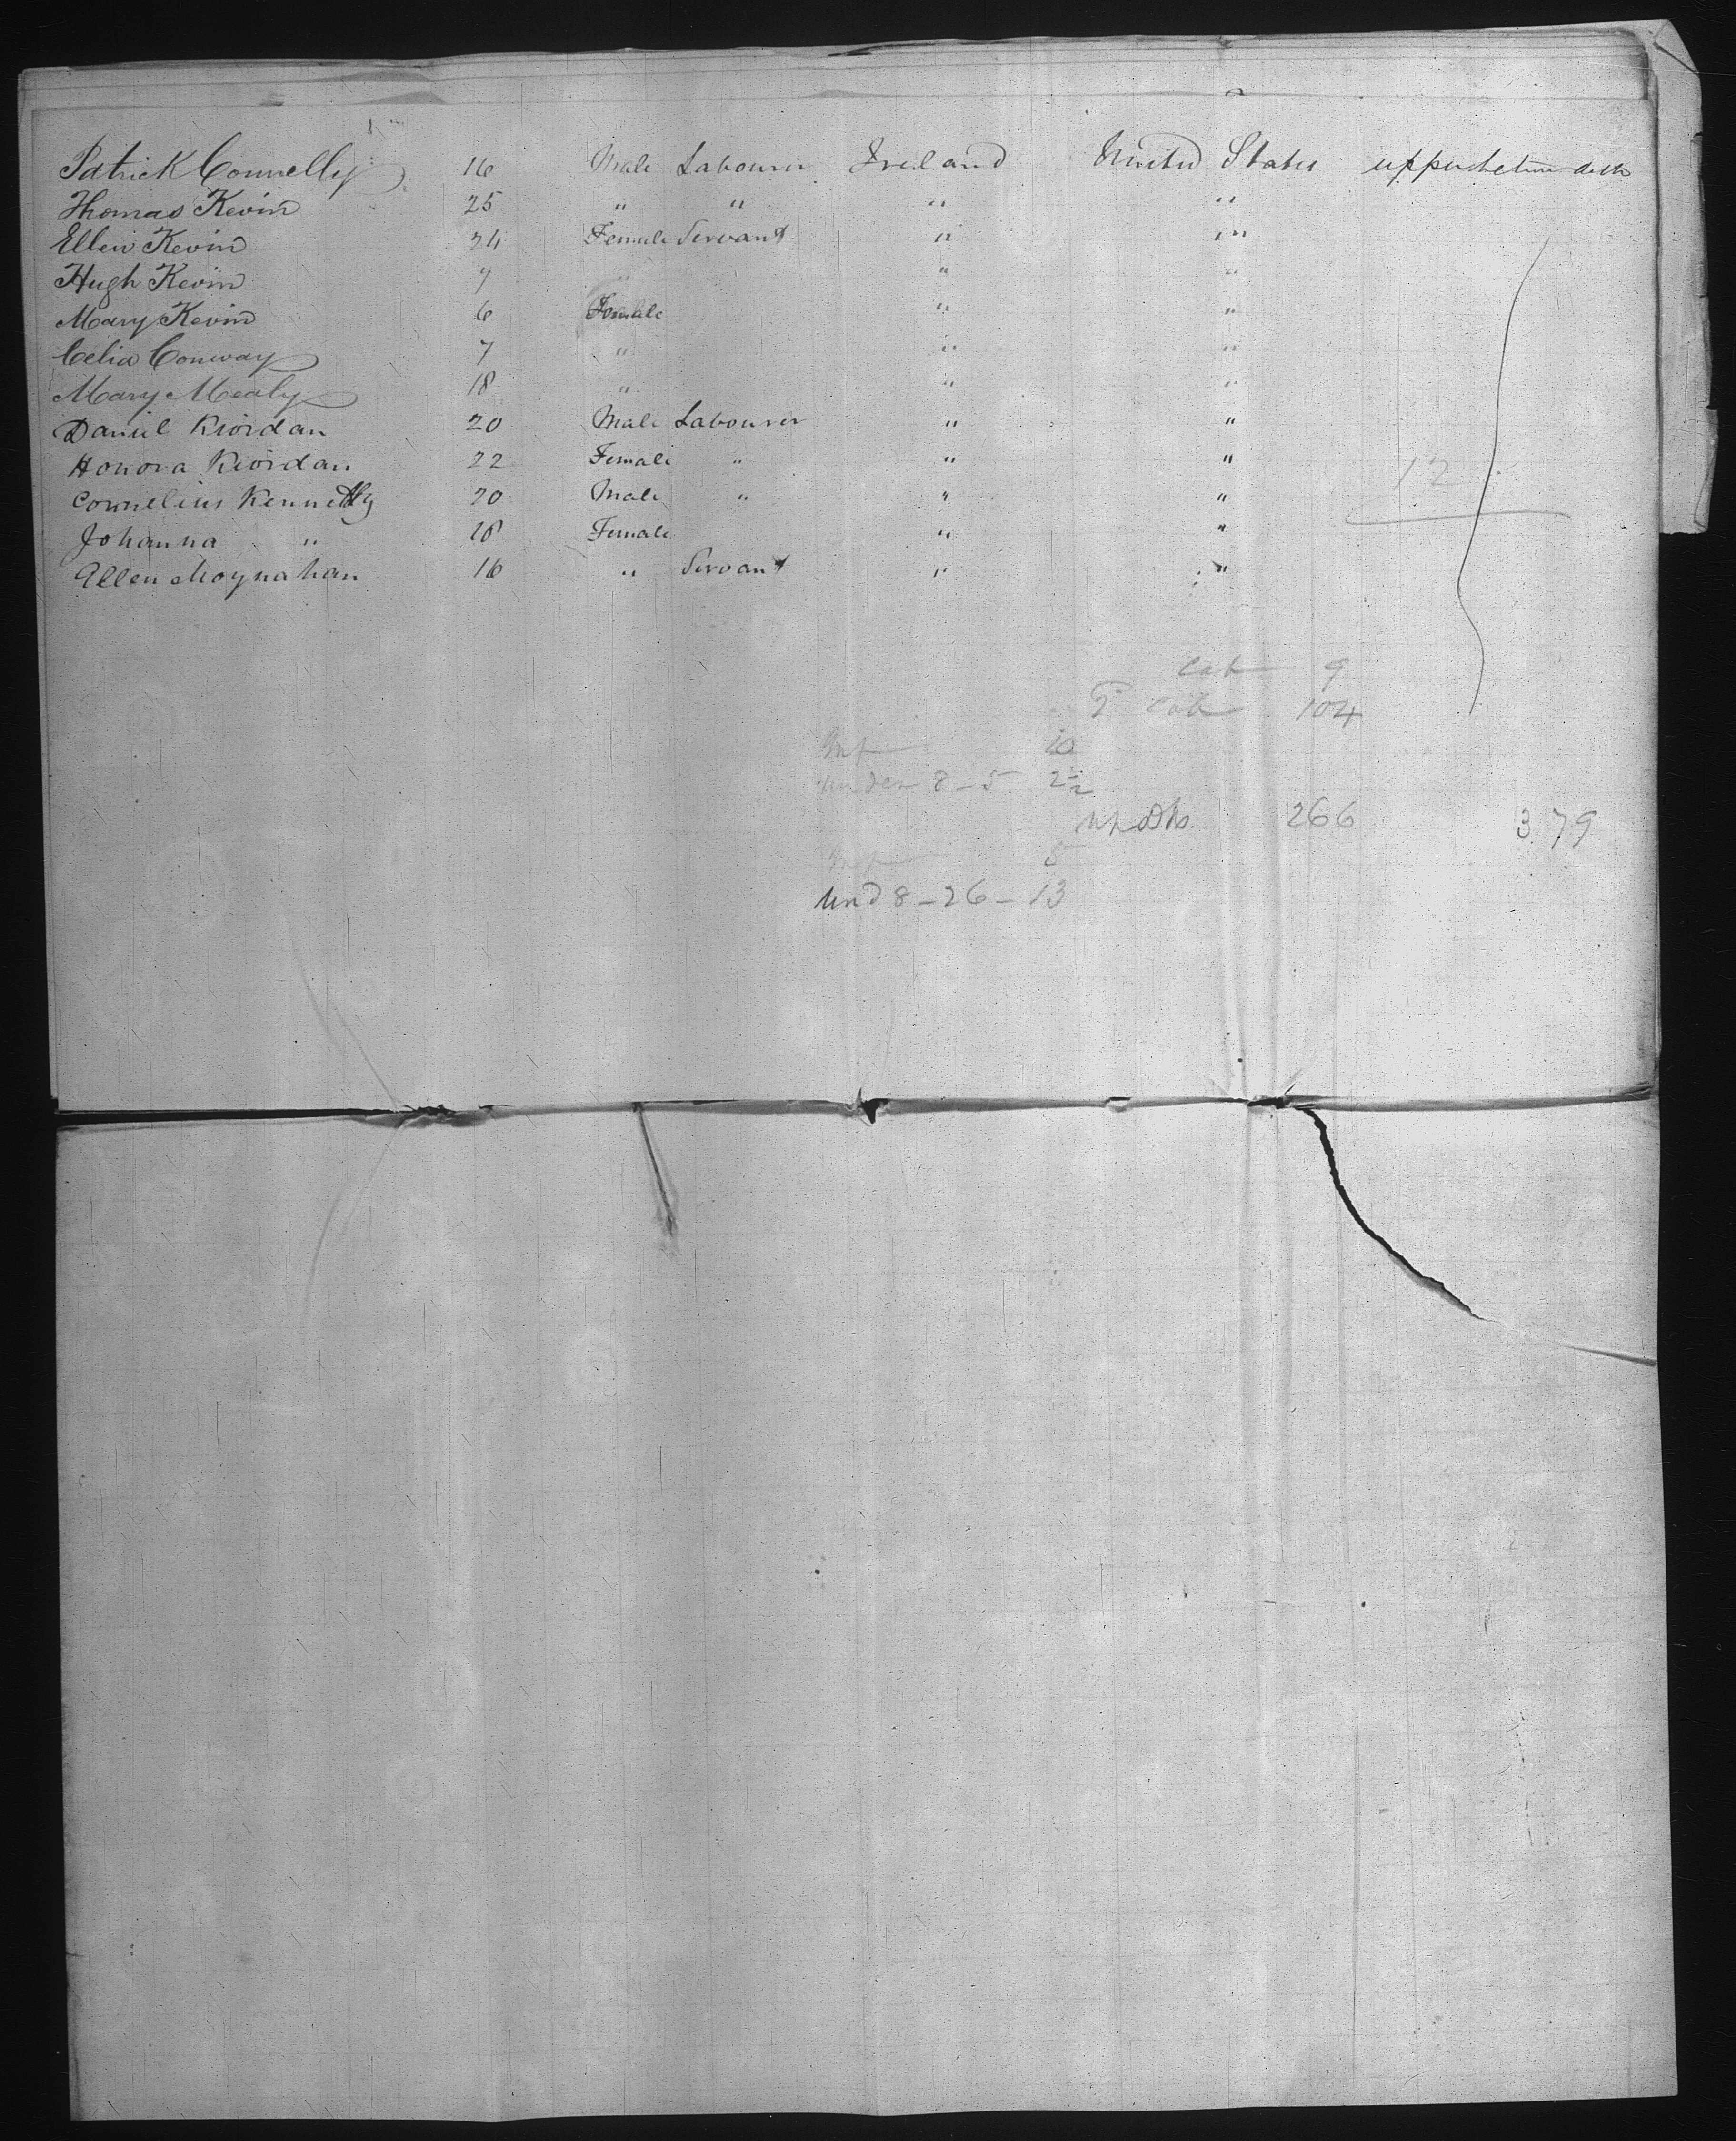 Patrick Connelly 16 Male Labourer Ireland United States upper between decks
Thomas Kevin 25 " " " "
Ellen Kevin 24 Female Servant " "
Hugh Kevin 7 " " "
Mary Kevin 6 Female " "
Celia Conway 7 " " "
Mary Mealy 18 " " "
Daniel Riordan 20 Male Labourer " "
Honora Riordan 22 Female " " "
Cornelius Kennelly 20 Male " " "
12
Johanna " 18 Female " "
Ellen Moynahan 16 " Servant " "
Cab 9
2 Cab 104
Inf 10
under 8 - 5 2½
up Dks 266 379
Inf 5
und 8 - 26 - 13